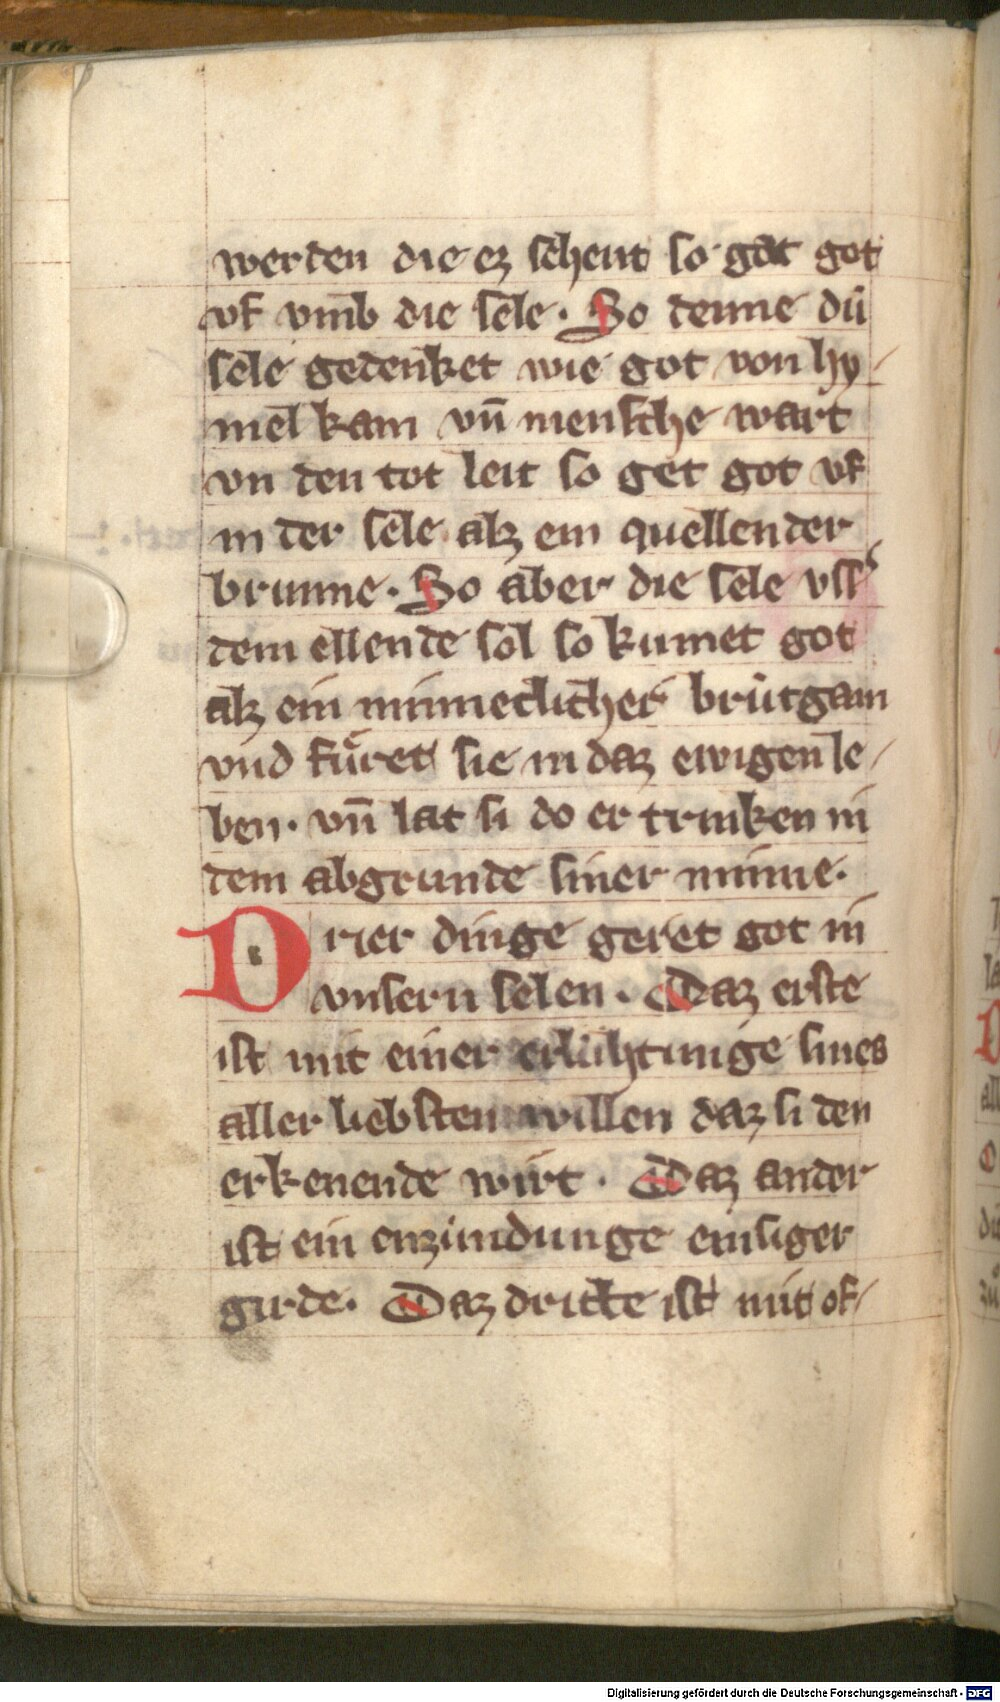 werden die ez schent so gat got
vf vmb die sele. So denne dü
sele gedenket wie got von hy/
mel kam vn̄ mensche wart
vn den tot leit so get got vf
in der sele alz ein quellender
brunne. So aber die sele vss
dem ellende sol so kumet got
alz ein minneclicher brütgam
vnd füret sie in daz ewigen le/
ben. vn̄ lat si do er trinken in
dem abgrunde siner minne.
Drier dinge geret got in
vnsern selen. Daz erste
ist mit einer erlühtunge sines
aller liebsten willen daz si den
erkenende wirt. Daz ander
ist ein enzündunge einsiger
girde. Daz dritte ist mit of/
Digitalisierung gefördert durch die Deutsche Forschungsgemeinschaft - DFG